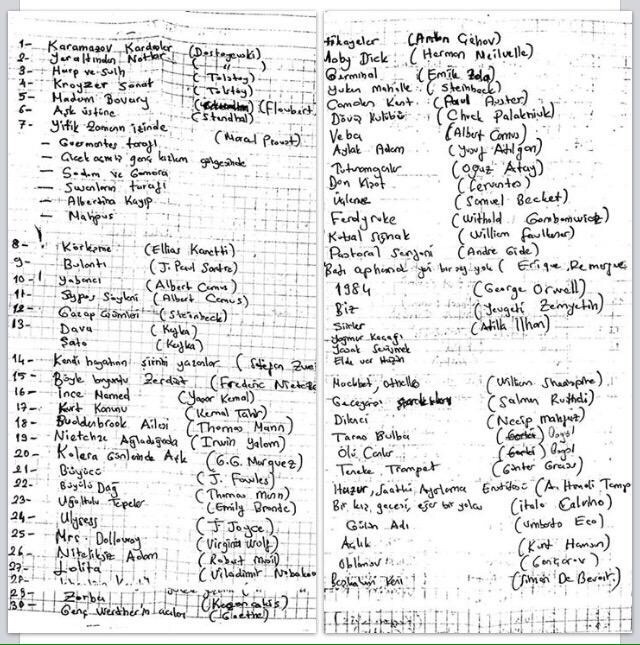 1- Karamazov Kardeşler (Dostoyevski)
2- Yeraltından Notlar ( " )
3- Harp ve Sulh (Tolstoy)
4- Kroyzer Sonat (Tolstoy)
5- Madam Bovary (Flaubert
6- Aşk üstüne (Stendhal)
7- Yitik Zamanın izinde (Marcel Proust)
— Guermantes tarafı
— Çiçek açmış genç kızların gölgesinde
— Sodom ve Gomora
— Swanların tarafı
— Albertina Kayıp
— Mahpus
8- Körleşme (Ellias Kanetti)
9- Bulantı (J. Paul Sartre)
10- Yabancı (Albert Camus)
11- Söyleni (Albert Camus)
12- Gazap Üzümleri (Steinbeck)
13- Dava (Kafka)
Şato (Kafka)
14- Kendi hayatının şiirini yazanlar (Stefan Zwe
15- Böyle buyurdu Zerdüşt (Frederic Nietzche
16- İnce Memed (Yaşar Kemal)
17- Kurt Kanunu (Kemal Tahir)
18- Buddenbrook Ailesi (Thomas Mann)
19- Nietzche Ağladığında (Irwin Yalom)
20- Kolera Günlerinde Aşk (G.G. Marquez)
21- Büyücü (J. Fowles)
22- Büyülü Dağ (Thomas Mann)
23- Uğultulu Tepeler (Emily Bronde)
24- Ulysess (J Joyce)
25- Mrs. Dolloway (Virginia Wolf)
26- Niteliksiz Adam (Robert Musil)
27- Lolita (Viladimir Nabokov
28-
29- Zorba (Kazancakis)
30- Genç Werther'in acıları (Goethe)
Hikayeler (Anton Çehov)
Moby Dick (Herman Melville)
Germinal (Emile Zola)
Yukarı Mahalle (Steinbeck)
Camdan Kent (Paul Auster)
Dövüş Kulübü (Chuck Palahniuk)
Veba (Albert Camus)
Aylak Adam (Yusuf Atılgan)
Tutunamayanlar (Oğuz Atay)
Don Kişot (Cervantes)
Üçleme (Samuel Becket)
Ferdyruke (Withold Gombrowicz)
Kutsal Sığınak (William Faulkner)
Pastoral Senfoni (Andre Gide)
Batı cephesinde yeni bir şey yok (Erique, Remarque
1984 (George Orwell)
Biz (Yevgeti Zemyetin)
Şiirler (Atilla İlhan)
Yağmur Kaçağı
Yasak Sevişmek
Elde var Hüzün
Macbet, othello (William Shakespeare)
Geceyarısı (Salman Rushdi)
Dilenci (Necip Mahfuz)
Taras Bulba (Gogol)
Ölü Canlar (Gogol)
Teneke Trampet (Günter Grass)
Huzur, Saatleri Ayarlama Enstitüsü (A. Hamdi Tanp
Bir kış gecesi, eğer bir yolcu (italo Calvino)
Gülün Adı (umberto Eco)
Açlık (Knut Hamsun)
Oblomov (Gonçarov)
(Simon De Bevoir.)